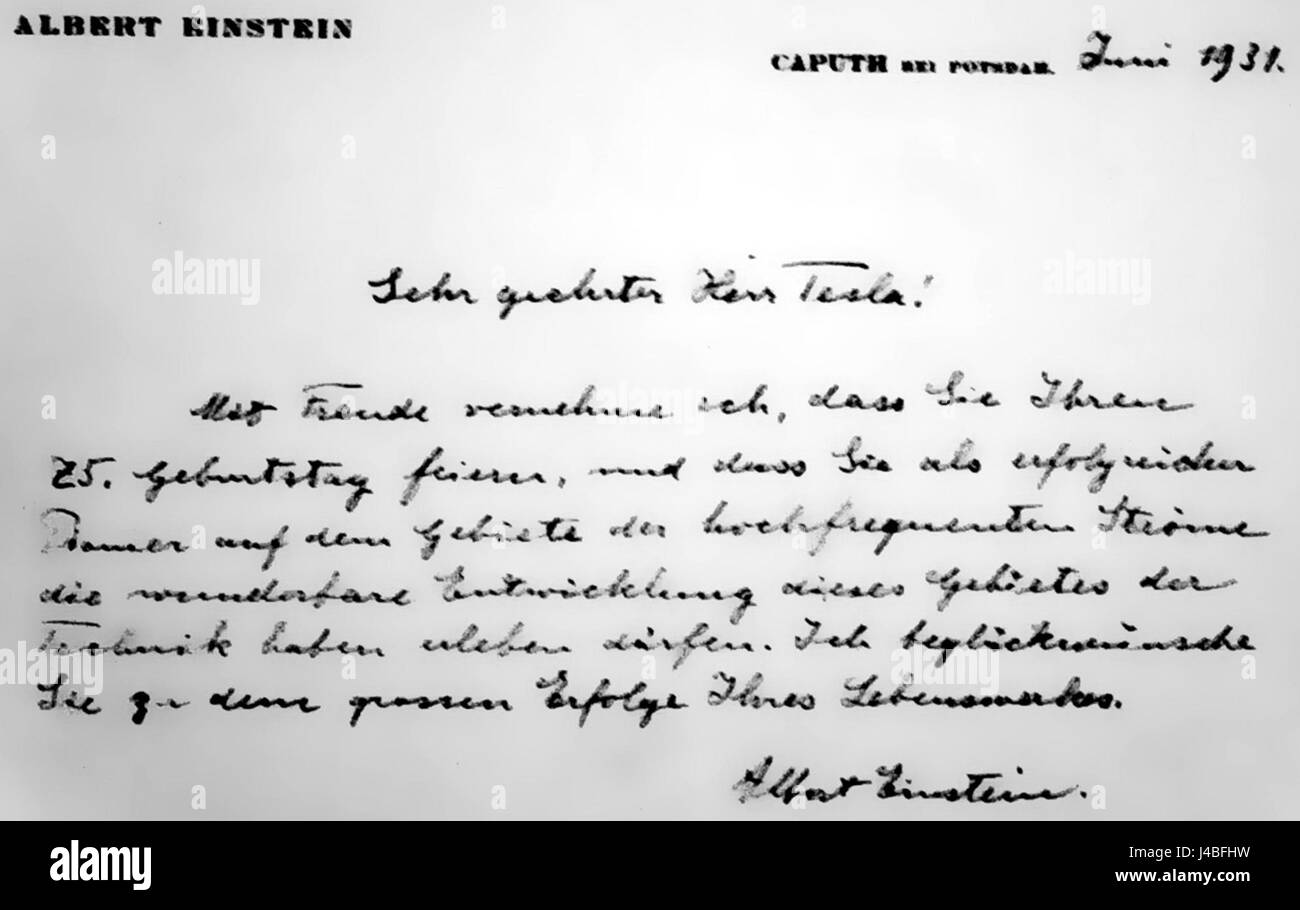 ALBERT EINSTEIN
CAPUTH BEI POTSDAM, Juni 1931.
Sehr geehrter Herr Tesla!
Mit Freude vernehme ich, dass Sie Ihren
75. Geburtstag feiern, und dass Sie als erfolgreicher
Pionier auf dem Gebiete der hochfrequenten Ströme
die wunderbare Entwicklung dieses Gebietes der
Technik haben erleben dürfen. Ich beglückwünsche
Sie zu dem grossen Erfolge Ihres Lebenswerkes.
Albert Einstein.
a alamy stock photo
J4BFHW
www.alamy.com